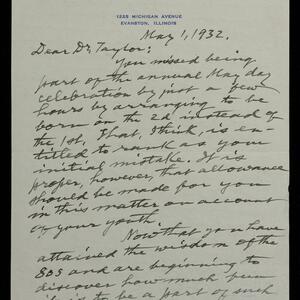 1225 MICHIGAN AVENUE
EVANSTON, ILLINOIS
May 1, 1932.
Dear Dr. Taylor:
You missed being
part of the annual May day
celebration by just a few
hours by arranging to be
born on the 2d instead of
the 1st. That, I think, is en-
titled to rank as your
initial mistake. It is
proper, however, that allowance
should be made for you
in this matter on account
of your youth.
Now that you have
attained the wisdom of the
80s and are beginning to
discover how much fun
it is to be a part of such